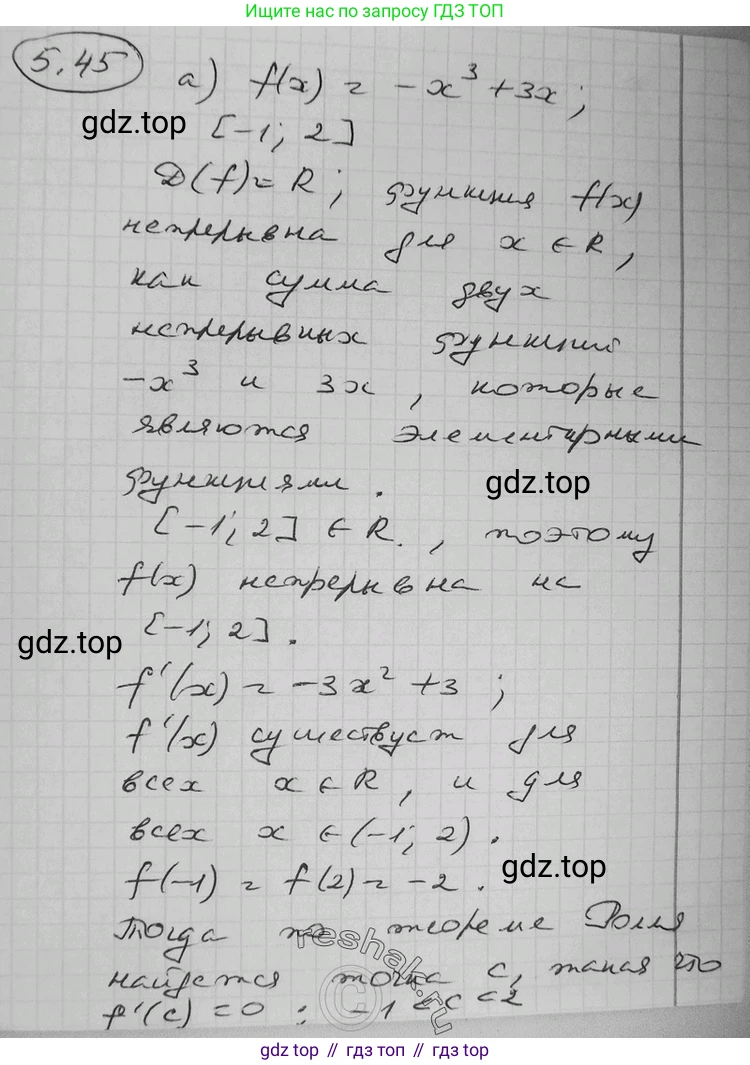 Ищите нас по запросу ГДЗ ТОП
5.45
а) f(x) = -x³ + 3x ;
gdz.top
[-1; 2]
D(f) = R ; функция f(x)
непрерывна для x ∈ R ,
как сумма двух
непрерывных функций
-x³ и 3x , которые
являются элементарными
функциями .
gdz.top
[-1; 2] ∈ R. , поэтому
f(x) непрерывна на
[-1; 2] .
gdz.top
f'(x) = -3x² + 3 ;
f'(x) существует для
всех x ∈ R , и для
всех x ∈ (-1; 2) .
gdz.top
f(-1) = f(2) = -2 .
Тогда по теореме Ролля
reshak.ru
найдется точка c, такая что
f'(c) = 0 ; -1 < c < 2
gdz top // гдз топ // gdz top // гдз топ